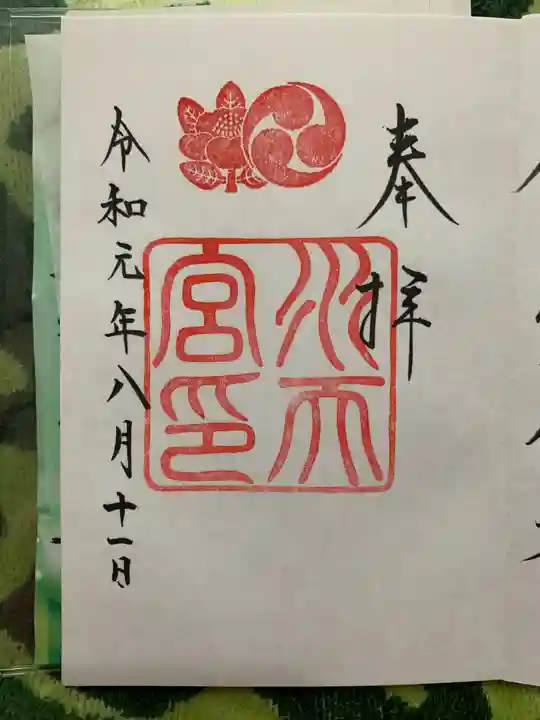 奉拝
水天
宮印
令和元年八月十一日